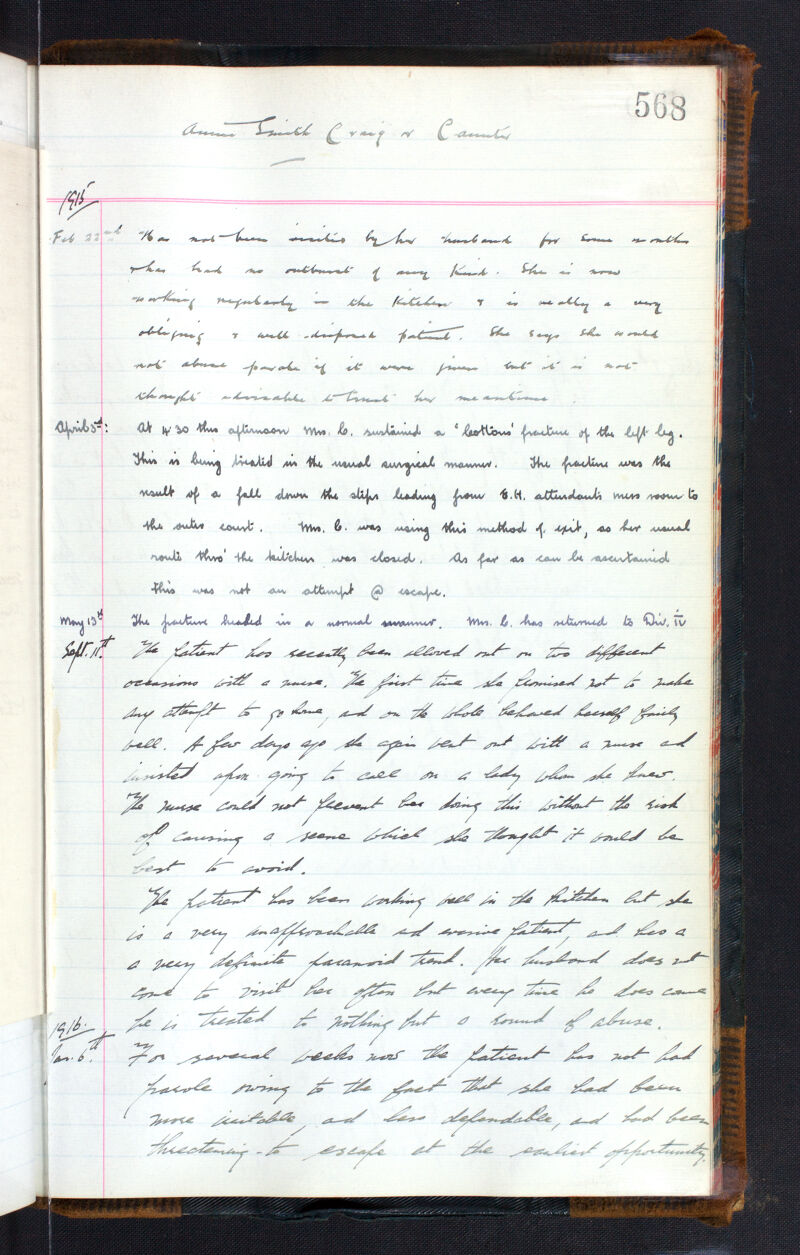 568
Annie Smith Craig or Caunter
1915
Feb 22nd Has not been visited by her husband for some months
& has had no outburst of any kind. She is now
working regularly in the kitchen & is really a very
obliging & well-disposed patient. She says she would
not abuse parole if it were given but it is not
thought advisable to trust her meantime.
April 5th: At 4.30 this afternoon Mrs. C. sustained a 'Potts' fracture of the left leg.
This is being treated in the usual surgical manner. The fracture was the
result of a fall down the steps leading from E.H. attendants mess room to
the outer court. Mrs. C. was using this method of exit, as her usual
route thro' the kitchen was closed. As far as can be ascertained
this was not an attempt @ escape.
May 13th The fracture healed in a normal manner. Mrs. C. has returned to Div. IV
Sept. 11th. The patient has recently been allowed out on two different
occasions with a nurse. The first time she promised not to make
any attempt to go home, and on the whole behaved herself fairly
well. A few days ago she again went out with a nurse and
insisted upon going to call on a lady whom she knew.
The nurse could not prevent her doing this without the risk
of causing a scene which she thought it would be
best to avoid.
The patient has been working well in the kitchen but she
is a very unapproachable and evasive patient, and has a
a very definite paranoid trend. Her husband does not
come to visit her often but every time he does come
he is treated to nothing but a round of abuse.
1916.
Jan. 6th. For several weeks now the patient has not had
parole owing to the fact that she had been
more irritable, and less dependable, and had been
threatening to escape at the earliest opportunity.